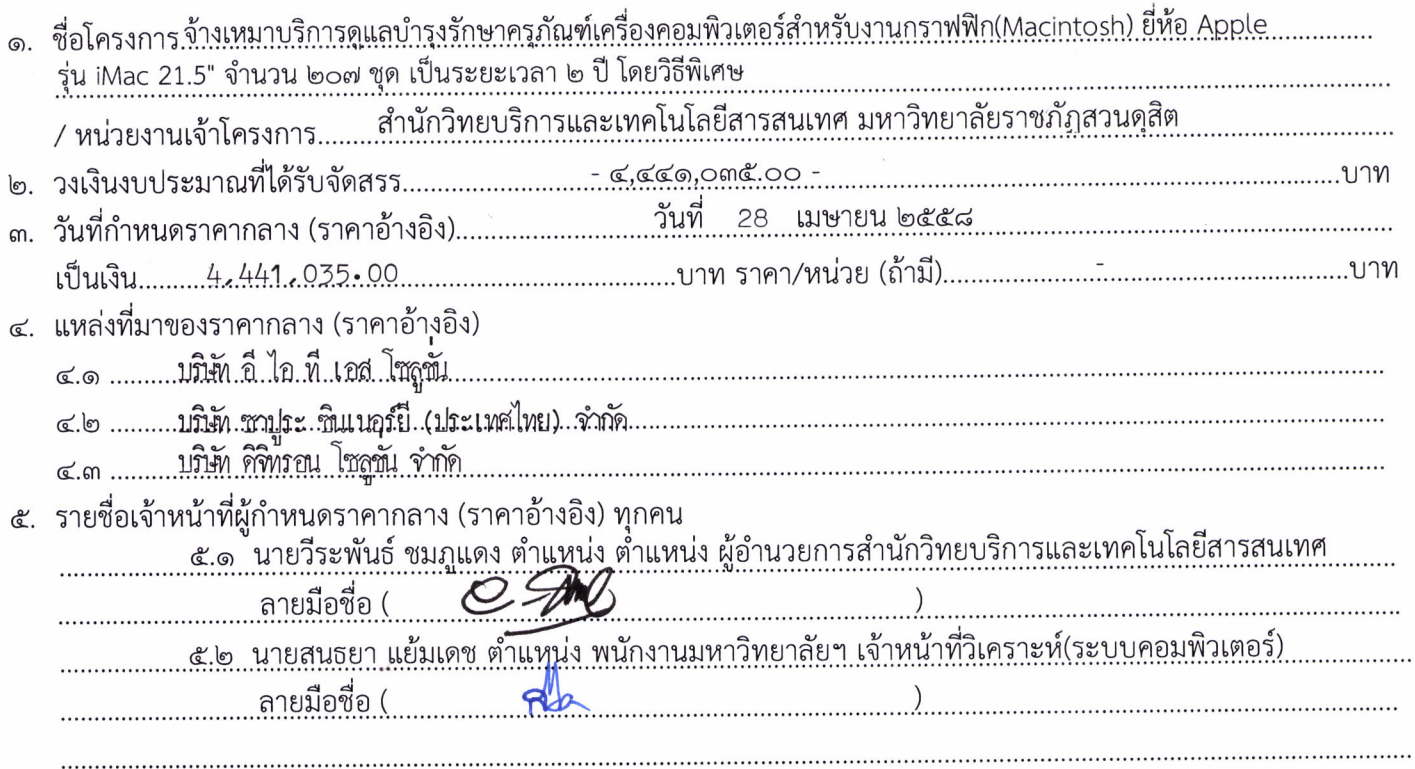 ๑. ชื่อโครงการ.จ้างเหมาบริการดูแลบำรุงรักษาครุภัณฑ์เครื่องคอมพิวเตอร์สำหรับงานกราฟฟิก(Macintosh) ยี่ห้อ Apple
รุ่น iMac 21.5" จำนวน ๒๐๗ ชุด เป็นระยะเวลา ๒ ปี โดยวิธีพิเศษ
/ หน่วยงานเจ้าโครงการ.......สำนักวิทยบริการและเทคโนโลยีสารสนเทศ มหาวิทยาลัยราชภัฏสวนดุสิต
๒. วงเงินงบประมาณที่ได้รับจัดสรร.......- ๔,๔๔๑,๐๓๕.๐๐ -.......บาท
๓. วันที่กำหนดราคากลาง (ราคาอ้างอิง).......วันที่ 28 เมษายน ๒๕๕๘
เป็นเงิน..........4,441,035.00..........บาท ราคา/หน่วย (ถ้ามี)..........-..........บาท
๔. แหล่งที่มาของราคากลาง (ราคาอ้างอิง)
๔.๑ ..........บริษัท อี ไอ ที เอส โซลูชั่น
๔.๒ ..........บริษัท ซาปูระ ซินเนอร์ยี่ (ประเทศไทย) จำกัด
๔.๓ ..........บริษัท ดิจิทรอน โซลูชั่น จำกัด
๕. รายชื่อเจ้าหน้าที่ผู้กำหนดราคากลาง (ราคาอ้างอิง) ทุกคน
๕.๑ นายวีระพันธ์ ชมภูแดง ตำแหน่ง ตำแหน่ง ผู้อำนวยการสำนักวิทยบริการและเทคโนโลยีสารสนเทศ
ลายมือชื่อ ( )
๕.๒ นายสนธยา แย้มเดช ตำแหน่ง พนักงานมหาวิทยาลัยฯ เจ้าหน้าที่วิเคราะห์(ระบบคอมพิวเตอร์)
ลายมือชื่อ ( )